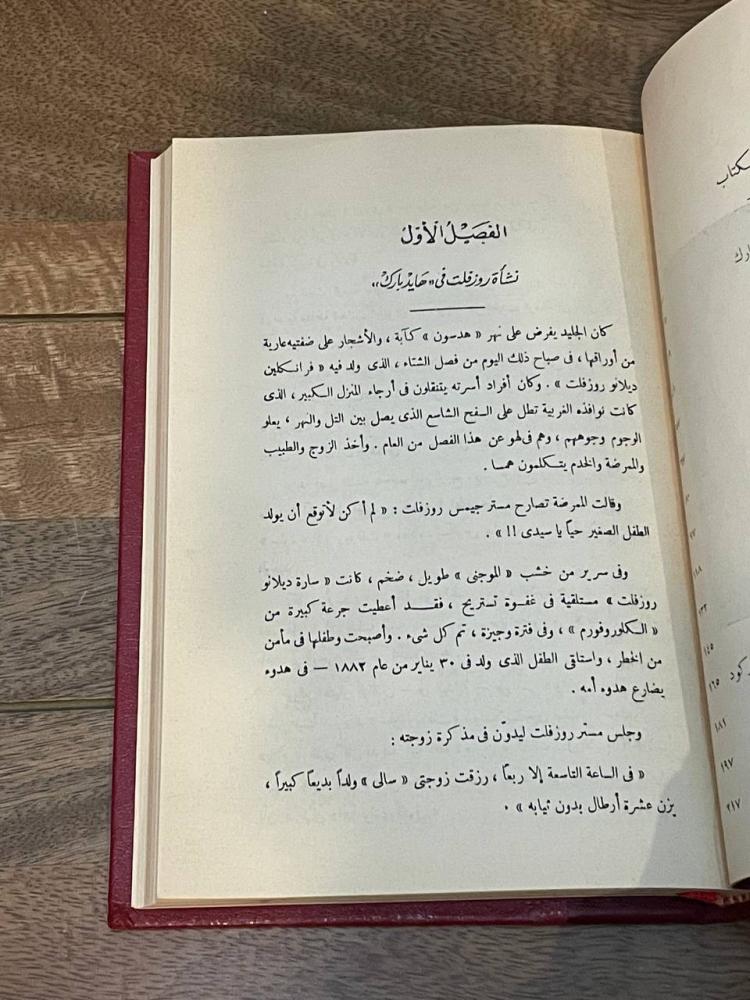 الفصل الأول
نشأة روزفلت في «هايد بارك»
كان الجليد يفرض على نهر « هدسون » كآبة ، والأشجار على ضفتيه عارية
من أوراقها ، فى صباح ذلك اليوم من فصل الشتاء ، الذى ولد فيه « فرانسكلين
ديلانو روزفلت » . وكان أفراد أسرته يتنقلون فى أرجاء المنزل الكبير ، الذى
كانت نوافذه الغربية تطل على السفح الشاسع الذى يصل بين التل والنهر ، يعلو
الوجوم وجوههم ، وهم فى لهو عن هذا الفصل من العام . وأخذ الزوج والطبيب
والممرضة والخدم يتكلمون همسا .
وقالت الممرضة تصارح مستر جيمس روزفلت : « لم أكن لأتوقع أن يولد
الطفل الصغير حياً يا سيدى !! » .
وفى سرير من خشب « الموجنى » طويل ، ضخم ، كانت « سارة ديلانو
روزفلت » مستلقية فى غفوة تستريح ، فقد أعطيت جرعة كبيرة من
« الكلوروفورم » ، وفى فترة وجيزة ، تم كل شىء . وأصبحت وطفلها فى مأمن
من الخطر ، واستلقى الطفل الذى ولد فى ٣٠ يناير من عام ١٨٨٢ — فى هدوء
يضارع هدوء أمه .
وجلس مستر روزفلت ليدوّن فى مذكرة زوجته :
« فى الساعة التاسعة إلا ربعاً ، رزقت زوجتى « سالى » ولداً بديعاً كبيراً ،
يزن عشرة أرطال بدون ثيابه » .
١٤٥
١٦٥
١٨١
١٩٧
٢١٧